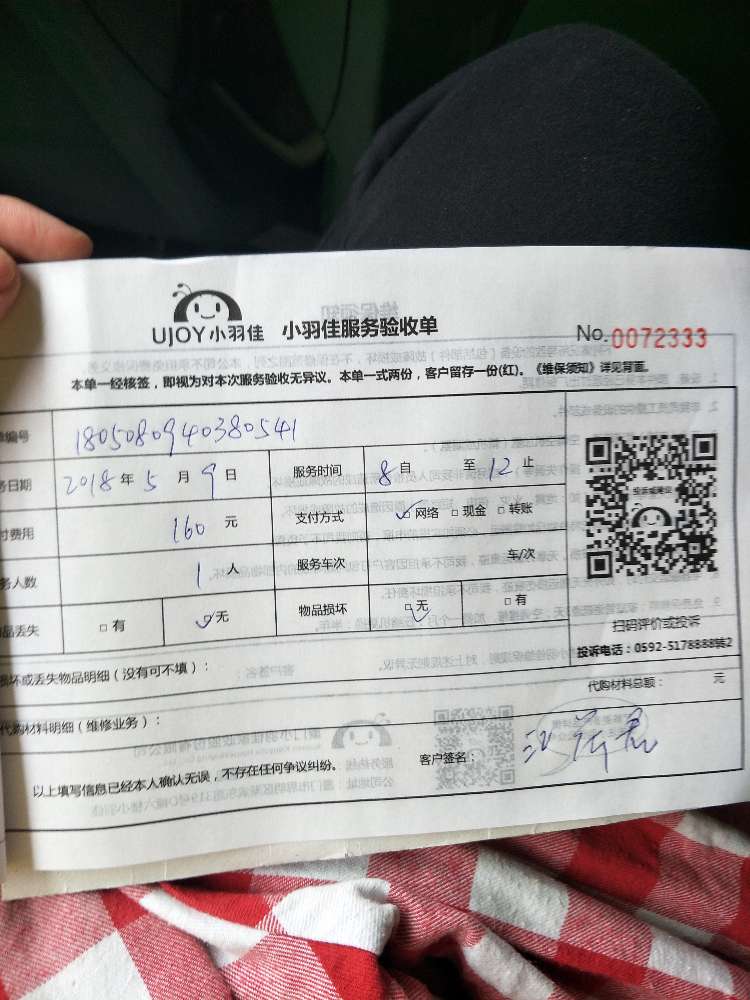 UJOY小羽佳 小羽佳服务验收单 No.0072333
本单一经核签，即视为对本次服务验收无异议。本单一式两份，客户留存一份(红)。《维保须知》详见背面。
编号 1805080940380541
日期 2018年5月9日 服务时间 8自 至12止
费用 160元 支付方式 ☑网络 □现金 □转账
人数 1人 服务车次 车/次
丢失 □有 ☑无 物品损坏 ☑无 □有
扫码评价或投诉
投诉电话：0592-5178888转2
坏或丢失物品明细（没有可不填）：
代购材料总额： 元
代购材料明细（维修业务）：
以上填写信息已经本人确认无误，不存在任何争议纠纷。 客户签名：